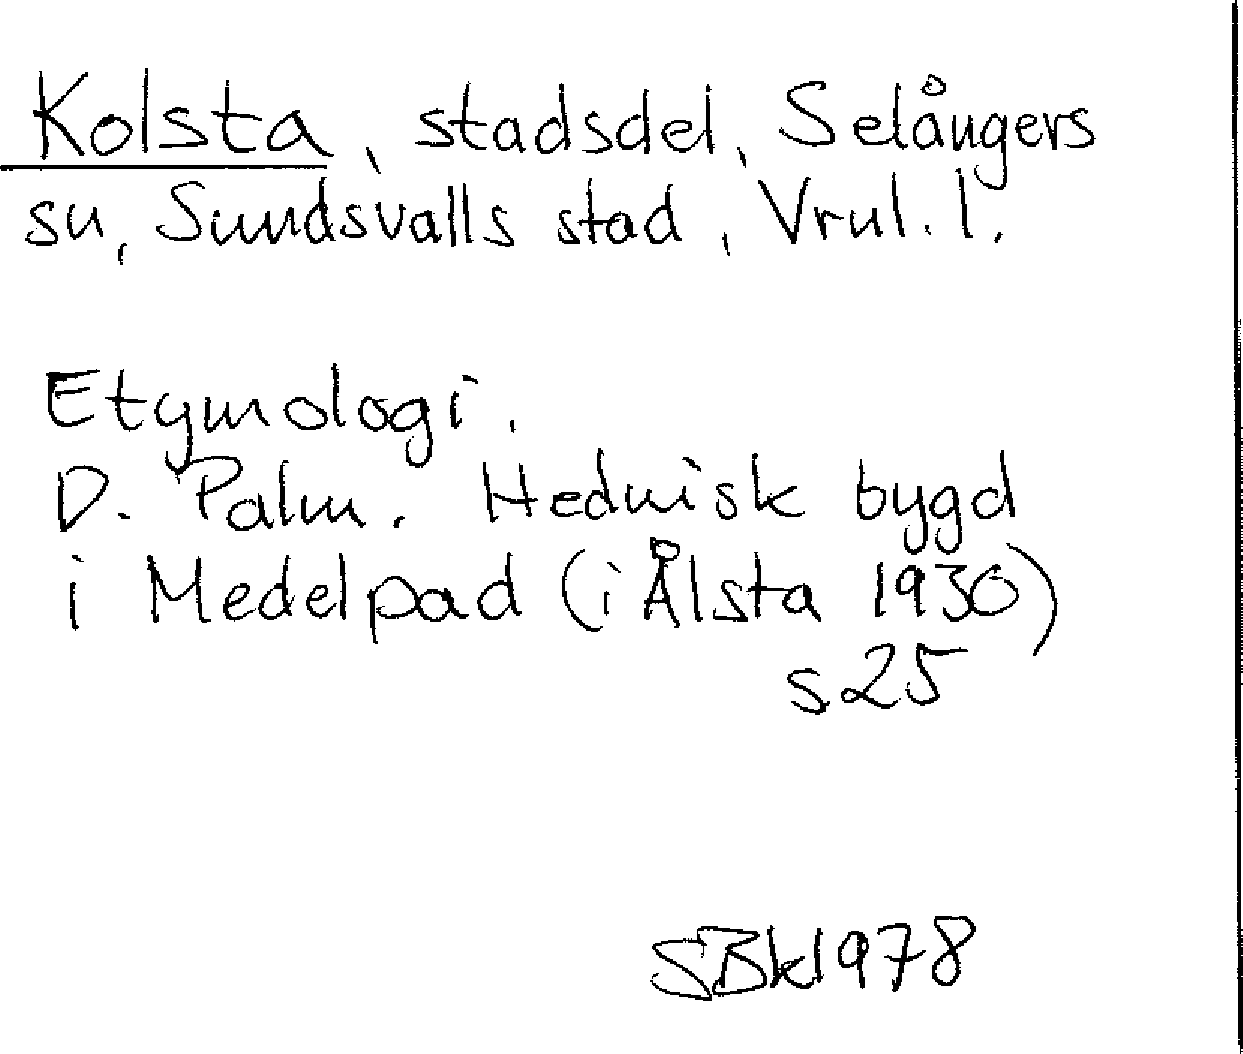 Kolsta, stadsdel, Selångers
sn, Sundsvalls stad, Vnl. l.
Etymologi.
D. Palm. Hednisk bygd
i Medelpad (i Ålsta 1930)
s 25
SBk1978